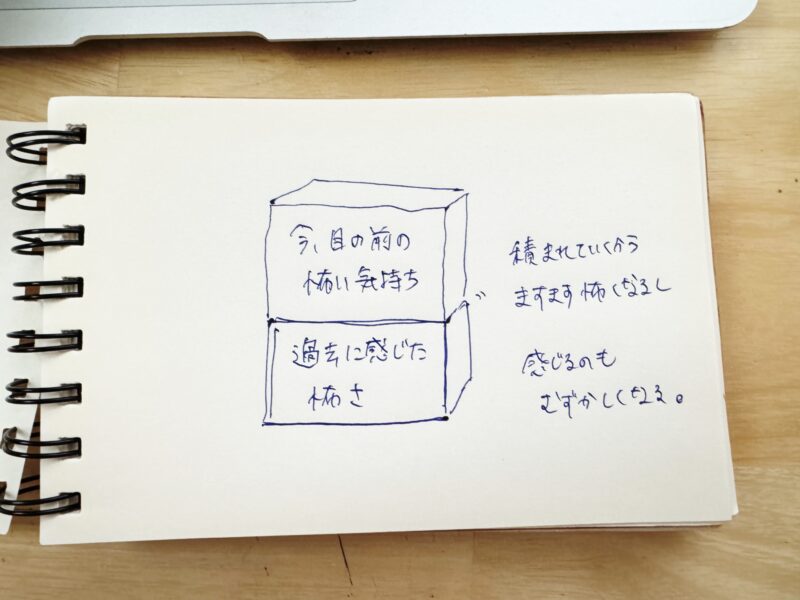 今、目の前の
怖い気持ち
過去に感じた
怖さ
積まれていくから
ますます怖くなるし
感じるのも
むずかしくなる。